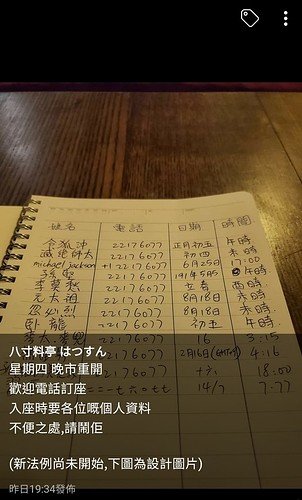 姓名 電話 日期 時間
令狐沖 22176077 正月初五 午時
滅絕師太 22176077 初四 未時
michael jackson +1 22176077 6月25日 17:00
22176077 酉時
李莫愁 22176077 立春
元太祖 22176077 8月18日
忽必烈 22176077 8月18日 未時
臥龍 22176077 初五 午時
22176077 16 3:15
76077 2月16日 4:16
18:00
二二一七六〇七七 14/7 7:77
八寸料亭 はつすん
星期四 晚市重開
歡迎電話訂座
入座時要各位嘅個人資料
不便之處,請鬧佢
(新法例尚未開始,下圖為設計圖片)
昨日19:34發佈